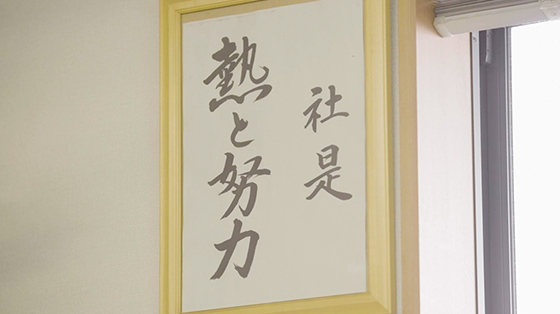 社是
熱と努力